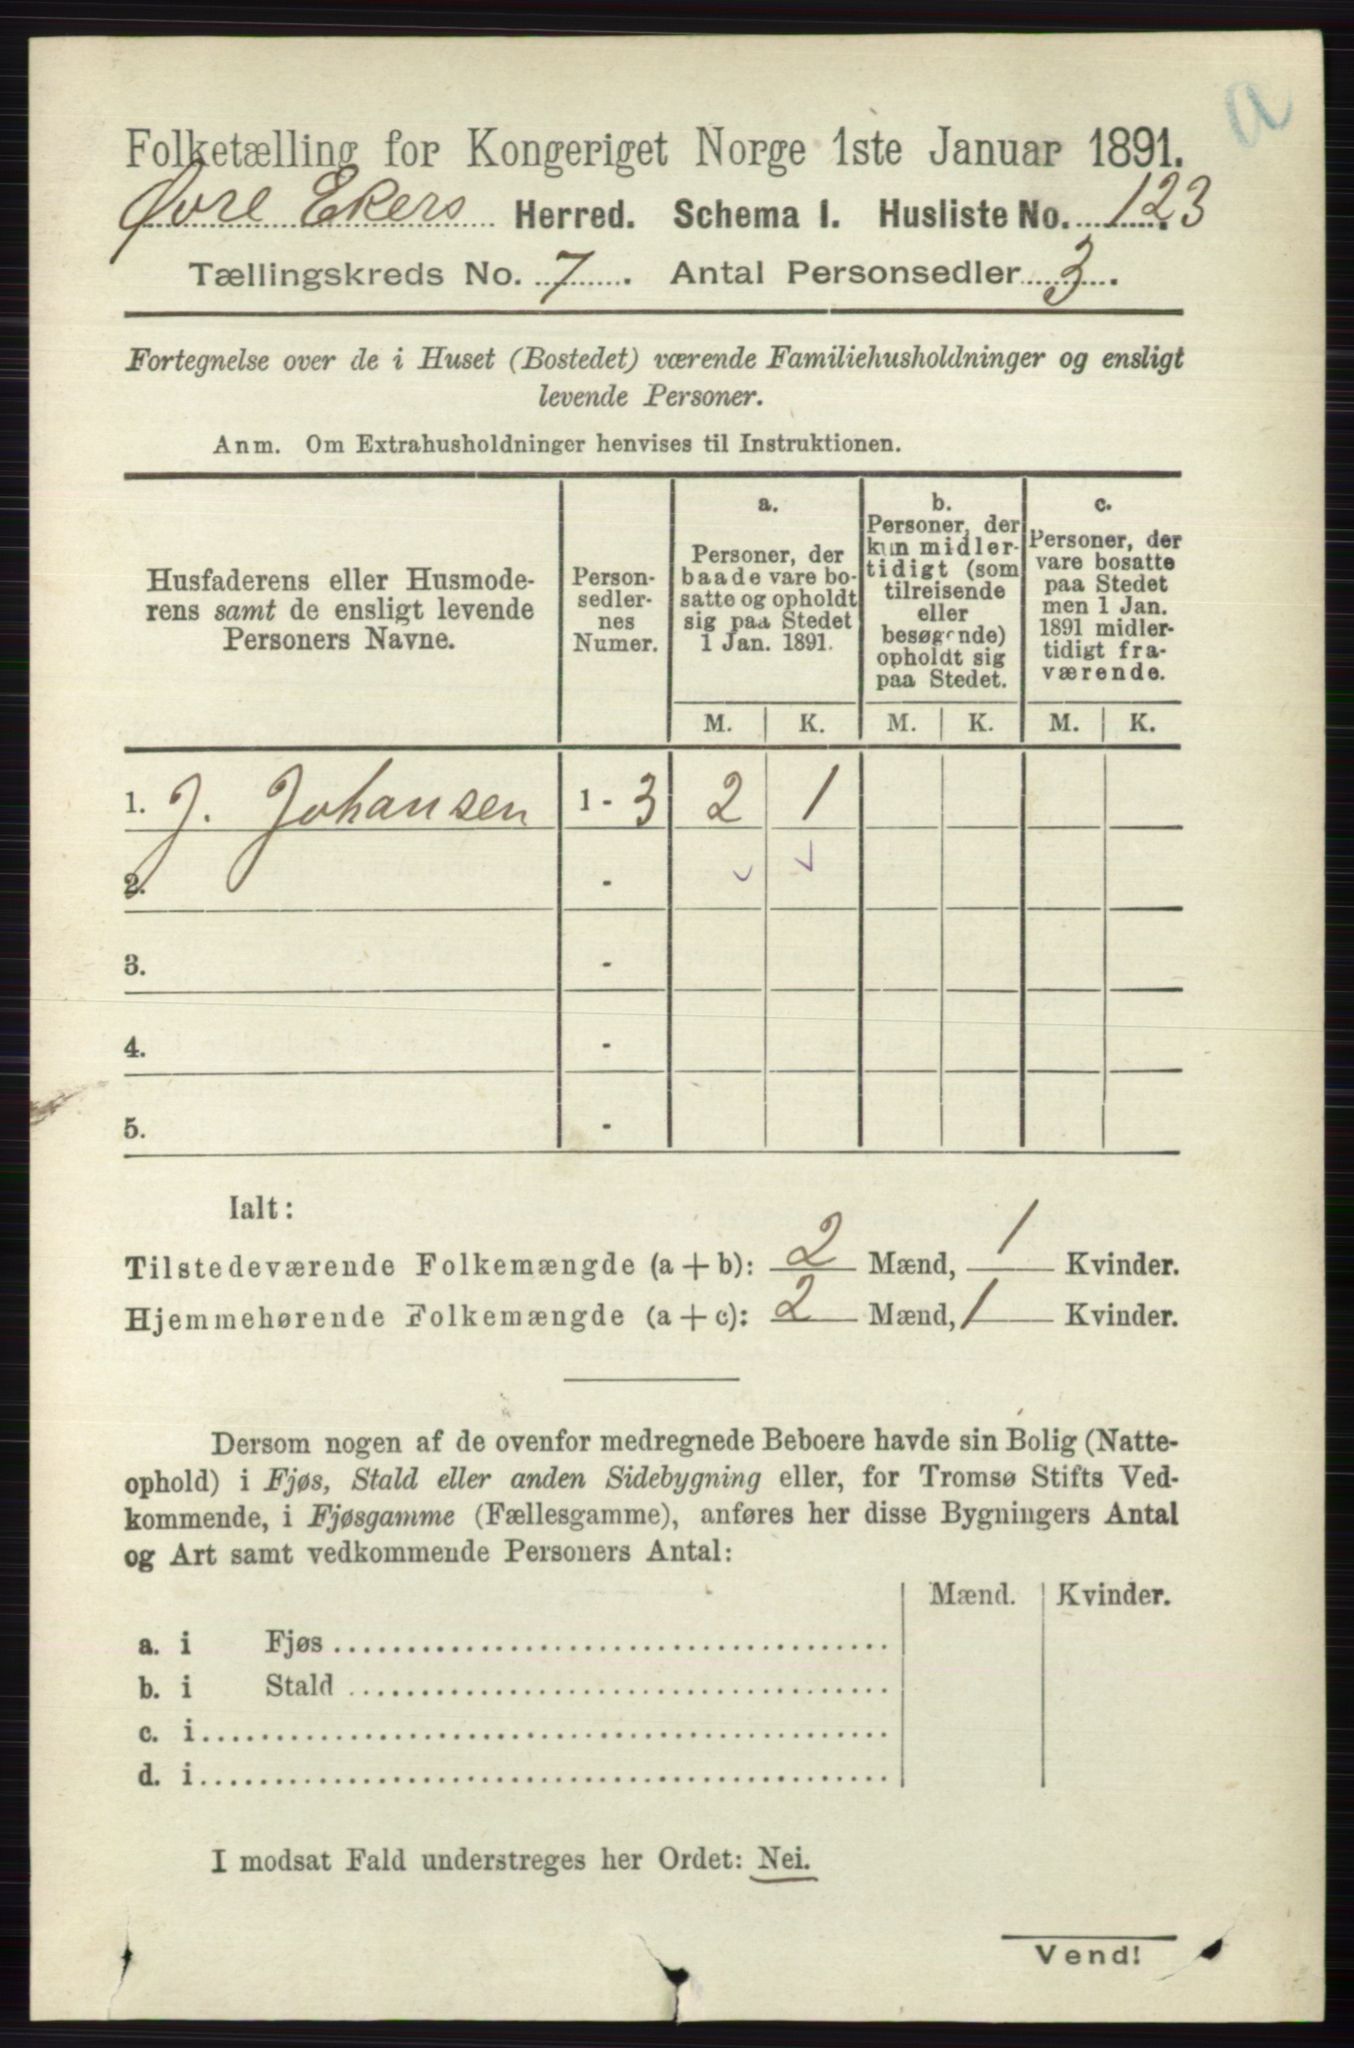 a
Folketælling for Kongeriget Norge 1ste Januar 1891.
Øvre Ekers Herred. Schema I. Husliste No. 123.
Tællingskreds No. 7. Antal Personsedler 3.
Fortegnelse over de i Huset (Bostedet) værende Familiehusholdninger og ensligt
levende Personer.
Anm. Om Extrahusholdninger henvises til Instruktionen.
Husfaderens eller Husmode-
rens samt de ensligt levende
Personers Navne.
Person-
sedler-
nes
Numer.
a.
Personer, der
baade vare bo-
satte og opholdt
sig paa Stedet
1 Jan. 1891.
b.
Personer, der
kun midler-
tidigt (som
tilreisende
eller
besøgende)
opholdt sig
paa Stedet.
c.
Personer, der
vare bosatte
paa Stedet
men 1 Jan.
1891 midler-
tidigt fra-
værende.
M. K. M. K. M. K.
1. J. Johansen 1 - 3 2 1
2. -
3. -
4. -
5. -
Ialt:
Tilstedeværende Folkemængde (a + b): 2 Mænd, 1 Kvinder.
Hjemmehørende Folkemængde (a + c): 2 Mænd, 1 Kvinder.
Dersom nogen af de ovenfor medregnede Beboere havde sin Bolig (Natte-
ophold) i Fjøs, Stald eller anden Sidebygning eller, for Tromsø Stifts Ved-
kommende, i Fjøsgamme (Fællesgamme), anføres her disse Bygningers Antal
og Art samt vedkommende Personers Antal:
Mænd. Kvinder.
a. i Fjøs
b. i Stald
c. i
d. i
I modsat Fald understreges her Ordet: Nei.
Vend!